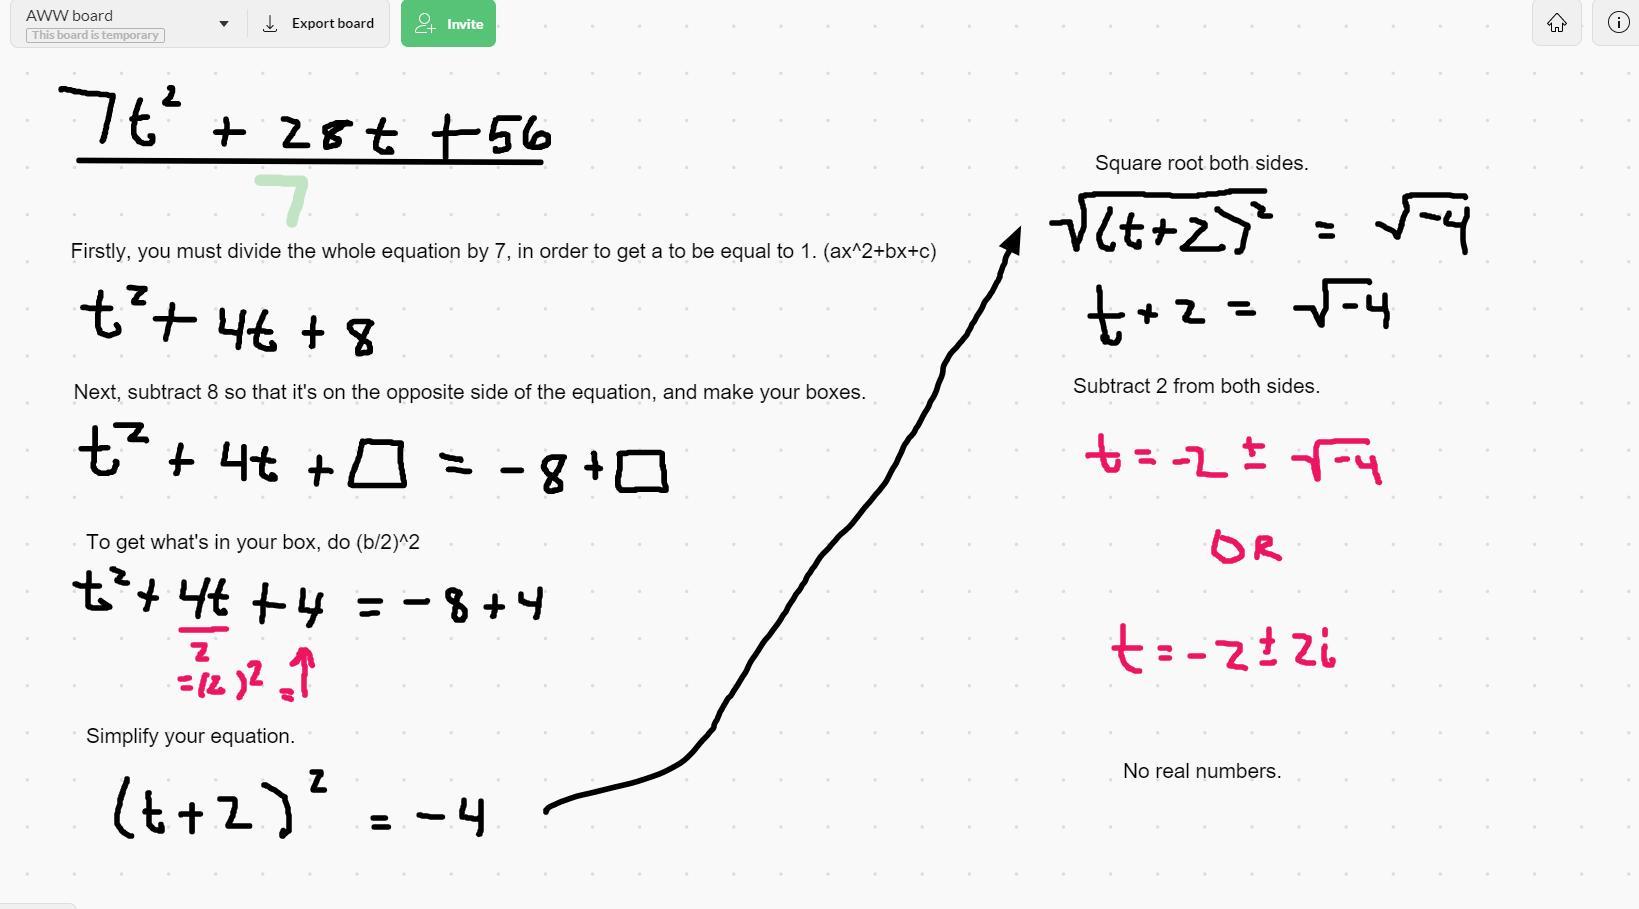 AWW board
This board is temporary
Export board
Invite
7t² + 28t + 56
7
Firstly, you must divide the whole equation by 7, in order to get a to be equal to 1. (ax^2+bx+c)
t² + 4t + 8
Next, subtract 8 so that it's on the opposite side of the equation, and make your boxes.
t² + 4t + □ = -8 + □
To get what's in your box, do (b/2)^2
t² + 4t + 4 = -8 + 4
2
=(2)² = ↑
Simplify your equation.
(t+2)² = -4
Square root both sides.
√(t+2)² = √-4
t + 2 = √-4
Subtract 2 from both sides.
t = -2 ± √-4
OR
t = -2 ± 2i
No real numbers.